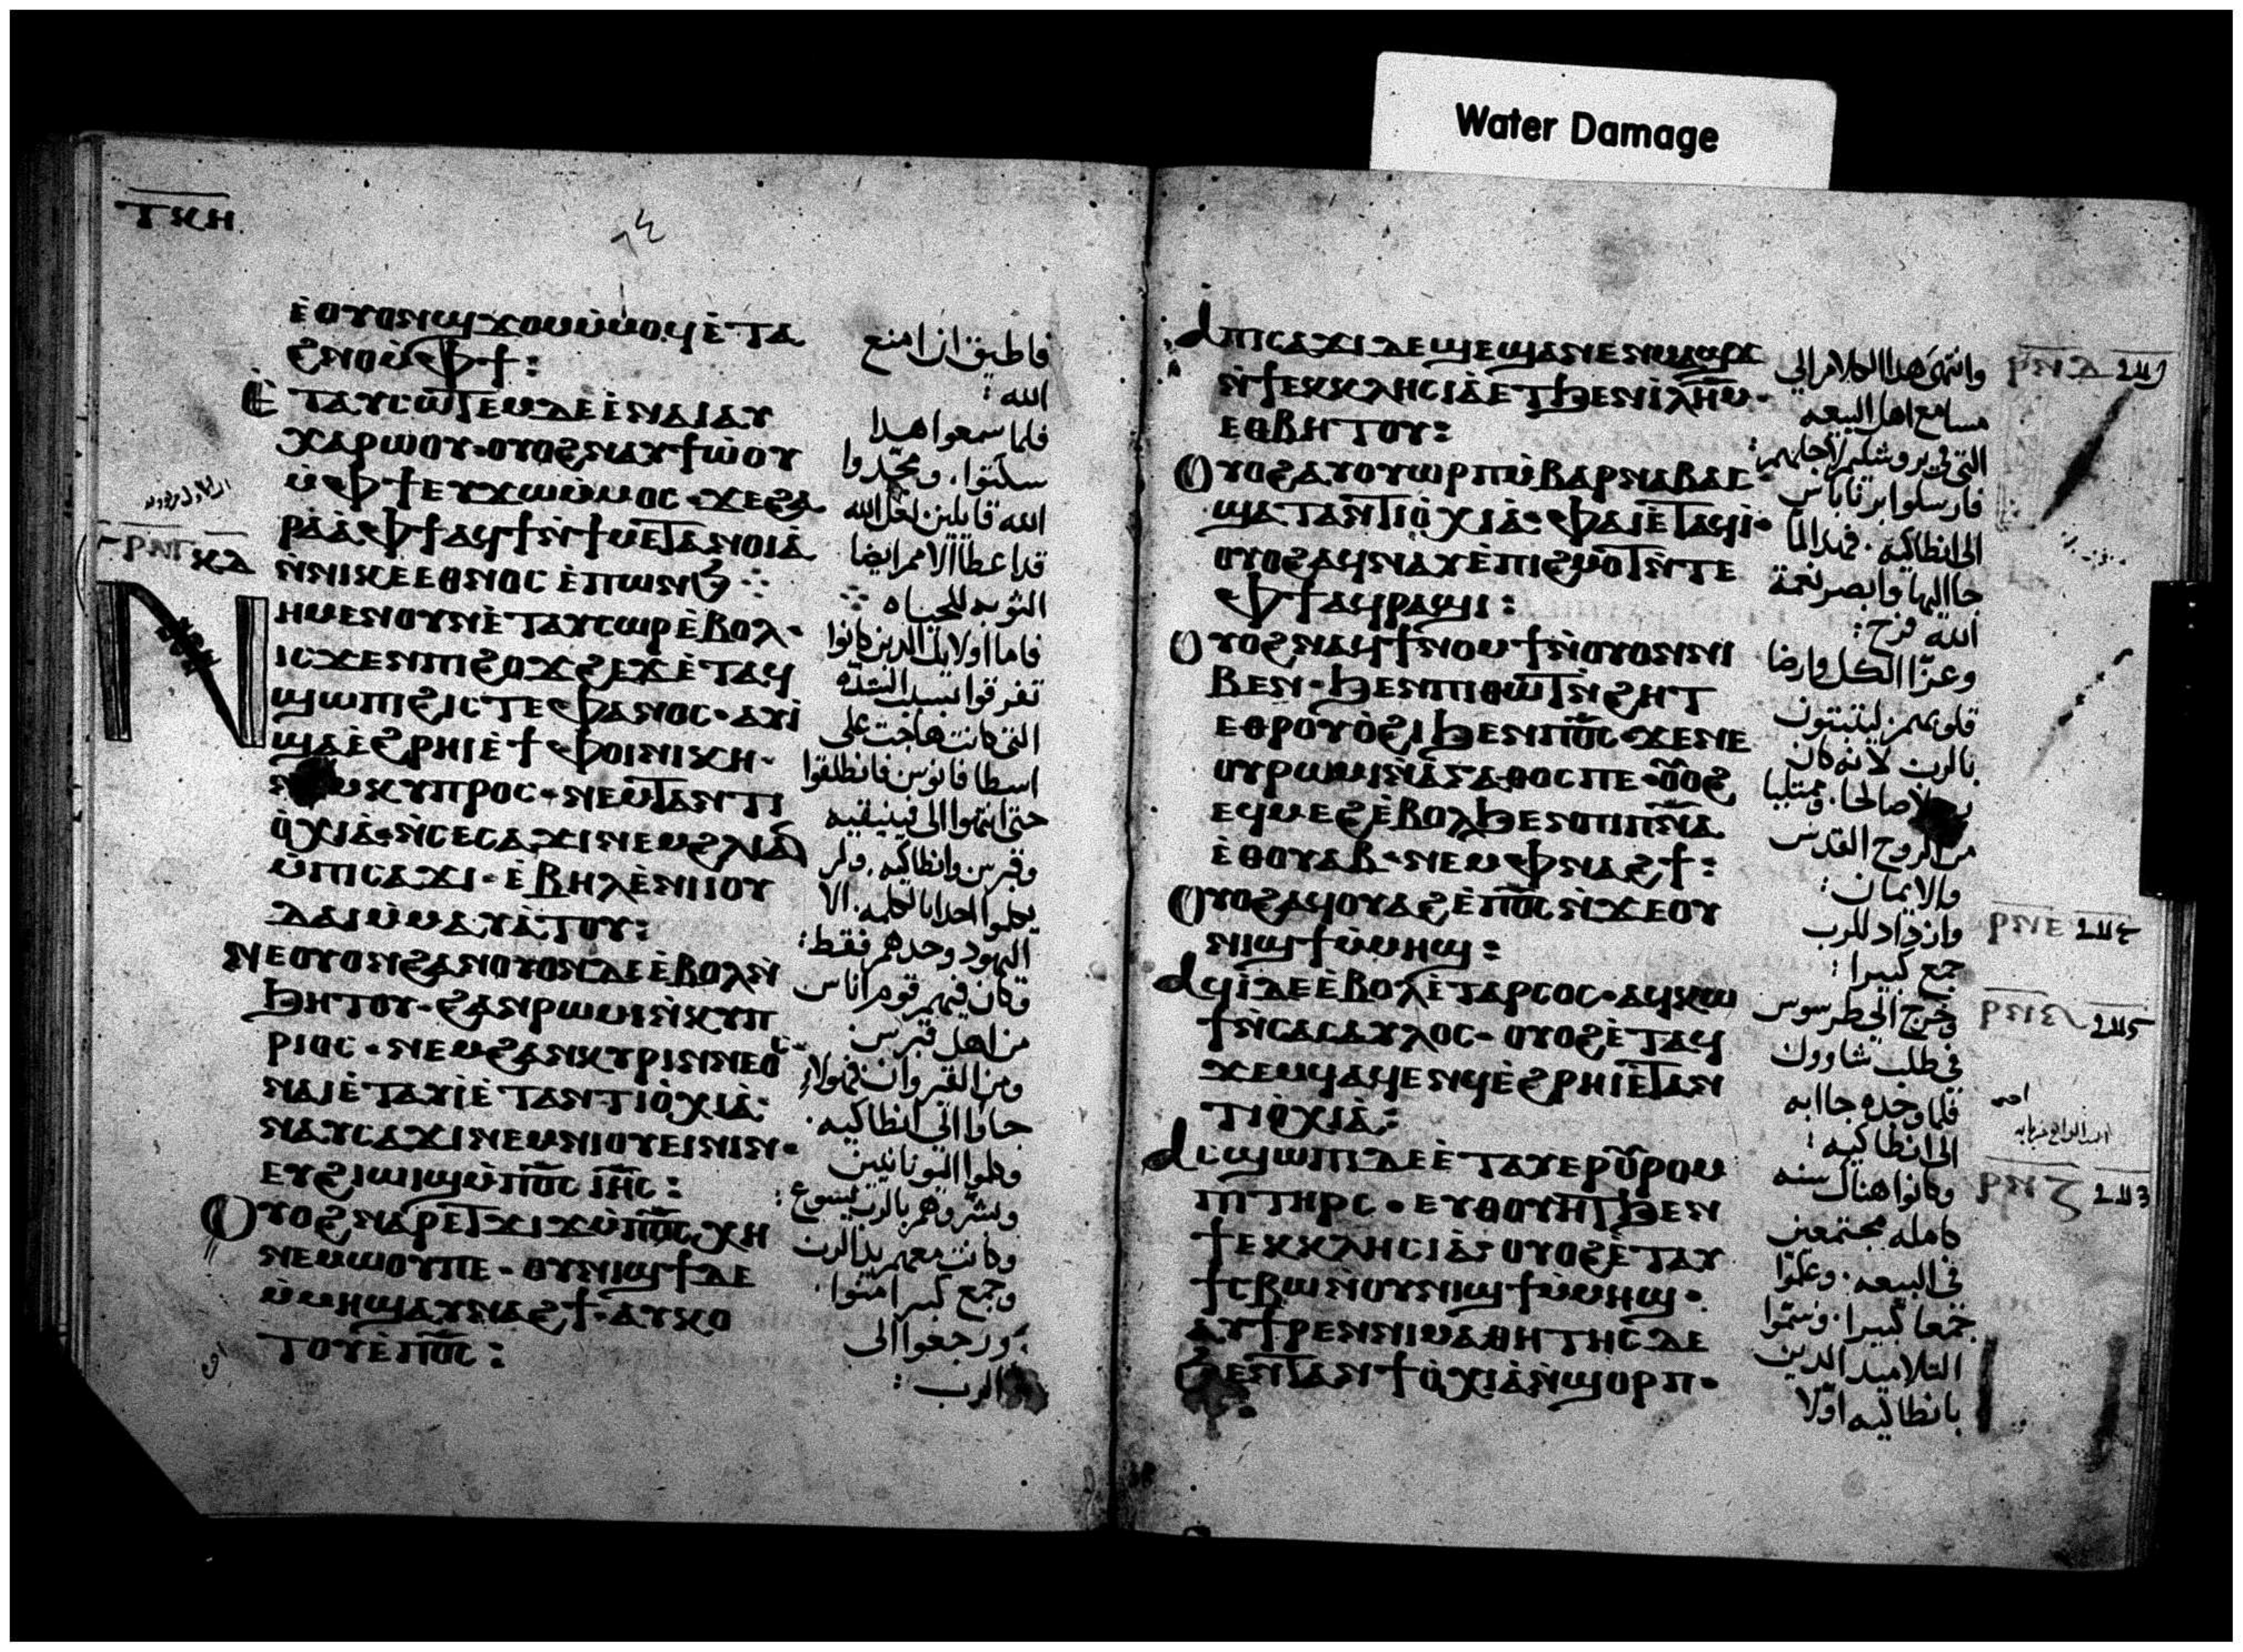 Water Damage
ⲧⲕⲏ
ⲉ̀ⲟⲩⲟⲛϣϫⲟⲙⲙ̀ⲙⲟϥⲉ̀ⲧⲁ
ϩⲛⲟⲙ̀ⲫϯ:
ⲉ̀ⲧⲁⲩⲥⲱⲧⲉⲙⲇⲉⲉ̀ⲛⲁⲓⲁⲩ
ⲭⲁⲣⲱⲟⲩ·ⲟⲩⲟϩⲛⲁⲩϯⲱ̀ⲟⲩ
ⲙ̀ⲫϯⲉⲩϫⲱⲙ̀ⲙⲟⲥ·ϫⲉϩⲁ
ⲣⲁ̀ⲁ̀ⲫϯⲁϥϯⲛ̀ϯⲙⲉ̀ⲧⲁⲛⲟⲓⲁ̀
ⲛ̀ⲛⲓⲕⲉⲉⲑⲛⲟⲥ ⲉ̀ⲡⲱⲛϧ
ⲛⲏⲙⲉⲛⲟⲩⲛⲉ̀ⲧⲁⲩⲥⲱⲣⲉ̀ⲃⲟⲗ·
ⲓⲥϫⲉⲛⲡⲓϩⲟϫϩⲉϫⲉ̀ⲧⲁϥ
ϣⲱⲡⲓϩⲓⲥⲧⲉⲫⲁⲛⲟⲥ·ⲁⲩⲓ̀
ϣⲁⲉ̀ϩⲣⲏⲓⲉ̀ϯⲫⲟⲓⲛⲓⲕⲏ·
ⲕⲩⲡⲣⲟⲥ·ⲛⲉⲙⲧⲁⲛⲧⲓ
ⲟ̀ⲭⲓⲁ̀·ⲛ̀ⲥⲉⲥⲁϫⲓⲛⲉⲙϩⲗⲓⲁⲛ
ⲙ̀ⲡⲓⲥⲁϫⲓ·ⲉ̀ⲃⲏⲗⲉ̀ⲛⲓⲓⲟⲩ
ⲇⲁⲓⲙ̀ⲙⲁⲩⲁ̀ⲧⲟⲩ:
ⲛⲉⲟⲩⲟⲛϩⲁⲛⲟⲩⲟⲛⲇⲉⲉ̀ⲃⲟⲗⲛ̀
ϧⲏⲧⲟⲩ·ϩⲁⲛⲣⲱⲙⲓⲛ̀ⲕⲩⲡ
ⲣⲓⲟⲥ·ⲛⲉⲙϩⲁⲛⲕⲩⲣⲓⲛⲛⲉⲟⲥ
ⲛⲁⲓⲉ̀ⲧⲁⲩⲓ̀ⲉ̀ⲧⲁⲛⲧⲓⲟ̀ⲭⲓⲁ̀·
ⲛⲁⲩⲥⲁϫⲓⲛⲉⲙⲛⲓⲟⲩⲉⲓⲛⲓⲛ·
ⲉⲩϩⲓϣⲓϣⲙ̀ⲡⲟ̅ⲥ̅ ⲓⲏ̅ⲥ̅:
ⲟⲩⲟϩⲛⲁ̀ⲣⲉⲧϫⲓϫⲙ̀ⲡⲟ̅ⲥ̅ⲭⲏ
ⲛⲉⲙⲱⲟⲩⲡⲉ·ⲟⲩⲛⲓϣϯⲇⲉ
ⲙ̀ⲙⲏϣⲁⲩⲛⲁϩϯ·ⲁⲩⲕⲟ
ⲧⲟⲩⲉ̀ⲡⲟ̅ⲥ̅:
فاطيق ان امنع
الله:
فلما سمعوا هذا
سكتوا، ومجّدوا
الله قايلين لعل الله
قد اعطا الامم ايضا
التوبه للحياه
فاما اولايك الذين كانوا
تفرقوا بسبب الشدّه
التي كانت هاجت على
اسطافانوس فانطلقوا
حتى انتهوا الى فينيقيه
وقبرس وانطاكيه. ولم
يكلموا احدا بالكلمه. الا
اليهود وحدهم فقط:
وكان فيهم قوم اناس
من اهل قبرس
ومن القيروان فهولاء
جاوا الى انطاكيه.
وكلموا اليونانيين
وبشّروهم بالرب يسوع:
وكانت معهم يد الرب
وجمع كبير امنوا.
ورجعوا الى
الرب:
ⲣⲛⲅ ⲕⲇ
ⲁⲡⲓⲥⲁϫⲓⲇⲉϣⲉϣⲁⲛⲉⲛⲙⲁϣϫ
ⲛ̀ϯⲉⲕⲕⲗⲏⲥⲓⲁ̀ⲉⲧϧⲉⲛⲓ̀ⲗⲏ̅ⲙ̅·
ⲉⲑⲃⲏⲧⲟⲩ:
ⲟⲩⲟϩⲁⲩⲟⲩⲱⲣⲡⲙ̀ⲃⲁⲣⲛⲁⲃⲁⲥ·
ϣⲁⲧⲁⲛⲧⲓⲟ̀ⲭⲓⲁ̀·ⲫⲁⲓⲉ̀ⲧⲁϥⲓ̀·
ⲟⲩⲟϩⲁϥⲛⲁⲩⲉ̀ⲡⲓϩⲙⲟⲧⲛ̀ⲧⲉ
ⲫϯⲁϥⲣⲁϣⲓ:
ⲟⲩⲟϩⲛⲁϥϯⲛⲟⲙϯⲛ̀ⲟⲩⲟⲛⲛⲓ
ⲃⲉⲛ·ϧⲉⲛⲡⲓⲑⲱⲧⲛ̀ϩⲏⲧ
ⲉⲑⲣⲟⲩⲟ̀ϩⲓϧⲉⲛⲡⲟ̅ⲥ̅·ϫⲉⲛⲉ
ⲟⲩⲣⲱⲙⲓⲛ̀ⲁ̀ⲅⲁⲑⲟⲥⲡⲉ·ⲟⲩⲟϩ
ⲉϥⲙⲉϩⲉ̀ⲃⲟⲗϧⲉⲛⲟⲡⲓⲡⲛ̅ⲁ̅
ⲉ̀ⲑⲟⲩⲁⲃ·ⲛⲉⲙⲫⲛⲁϩϯ:
ⲟⲩⲟϩⲁϥⲟⲩⲁϩⲉ̀ⲡⲟ̅ⲥ̅ⲛ̀ϫⲉⲟⲩ
ⲛⲓϣϯⲙ̀ⲙⲏϣ:
ⲁϥⲓ̀ⲇⲉⲉ̀ⲃⲟⲗⲉ̀ⲧⲁⲣⲥⲟⲥ·ⲁϥⲕⲱ
ϯⲛ̀ⲥⲁⲥⲁⲩⲗⲟⲥ·ⲟⲩⲟϩⲉ̀ⲧⲁϥ
ϫⲉⲙϥⲁϥⲉⲛϥⲉ̀ϩⲣⲏⲓⲉ̀ⲧⲁⲛ
ⲧⲓⲟ̀ⲭⲓⲁ̀:
ⲁⲥϣⲱⲡⲓⲇⲉⲉ̀ⲧⲁⲩⲉⲣⲟⲩⲣⲟⲙ
ⲡⲓⲧⲏⲣⲥ·ⲉⲩⲑⲟⲩⲏⲧϧⲉⲛ
ϯⲉⲕⲕⲗⲏⲥⲓⲁ̀:ⲟⲩⲟϩⲉ̀ⲧⲁⲩ
ϯⲥⲃⲱⲛ̀ⲟⲩⲛⲓϣϯⲙ̀ⲙⲏϣ·
ⲁⲩϯⲣⲉⲛⲛⲓⲙⲁⲑⲏⲧⲏⲥⲇⲉ
ϧⲉⲛⲧⲁⲛϯⲟ̀ⲭⲓⲁ̀ⲛ̀ϣⲟⲣⲡ·
وانتهى هذا الكلام الى
مسامع اهل البيعه
التي في يروشليم لاجلهم:
فارسلوا برنابا س
الى انطاكيه. فهذا لما
جا اليها وابصر نعمة
الله فرح:
وعزّا الكل وارضا
قلوبهم ليثبتون
بالرب لانه كان
صالحا. وممتليا
من الروح القدس
والايمان:
وازداد للرب
جمع كبير ا:
وخرج الى طرسوس
في طلب شاوول
فلما وجده جا به
الى انطاكيه:
وكانوا هناك سنه
كامله مجتمعين
في البيعه. وعلّموا
جمعا كبيرا. وسمّوا
التلاميذ الذين
بانطاكيه اوّلا
ⲣⲛⲇ
ⲣⲛⲉ
ⲣⲛⲋ
ⲣⲛⲍ